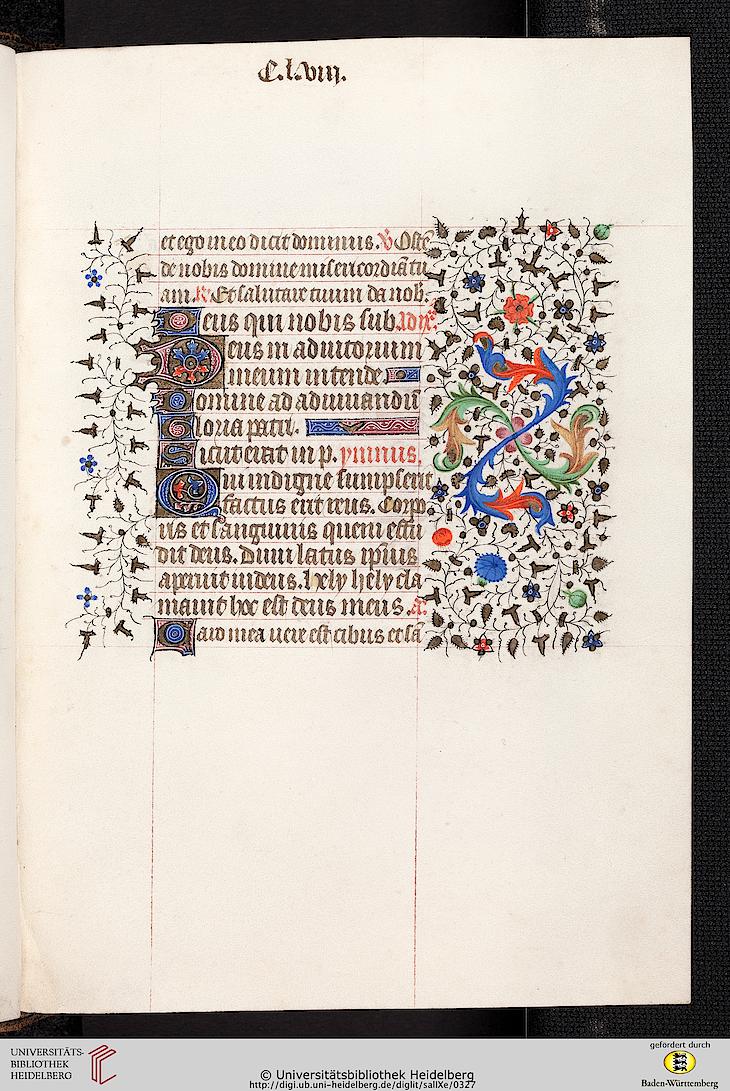 C.lviij.
et ego in eo dicit dominus. V Oste
de nobis domine misericordiā tu
am. R Et salutare tuum da nob.
Deus qui nobis sub. adir̄.
Deus in adiutorium
meum intende.
Domine ad adiuuandū
Gloria patri.
Sicut erat in p. ymnus.
Qui indigne sumpserit
factus erit reus. Corpo
ris et sanguinis quem effu
dit deus. Dum latus ip̄ius
aperuit iudeus. hely hely cla
mauit hoc est deus meus. a.
Caro mea uere est cibus et sā
UNIVERSITÄTS-
BIBLIOTHEK
HEIDELBERG
© Universitätsbibliothek Heidelberg
http://digi.ub.uni-heidelberg.de/diglit/sallXe/0327
gefördert durch
Baden-Württemberg